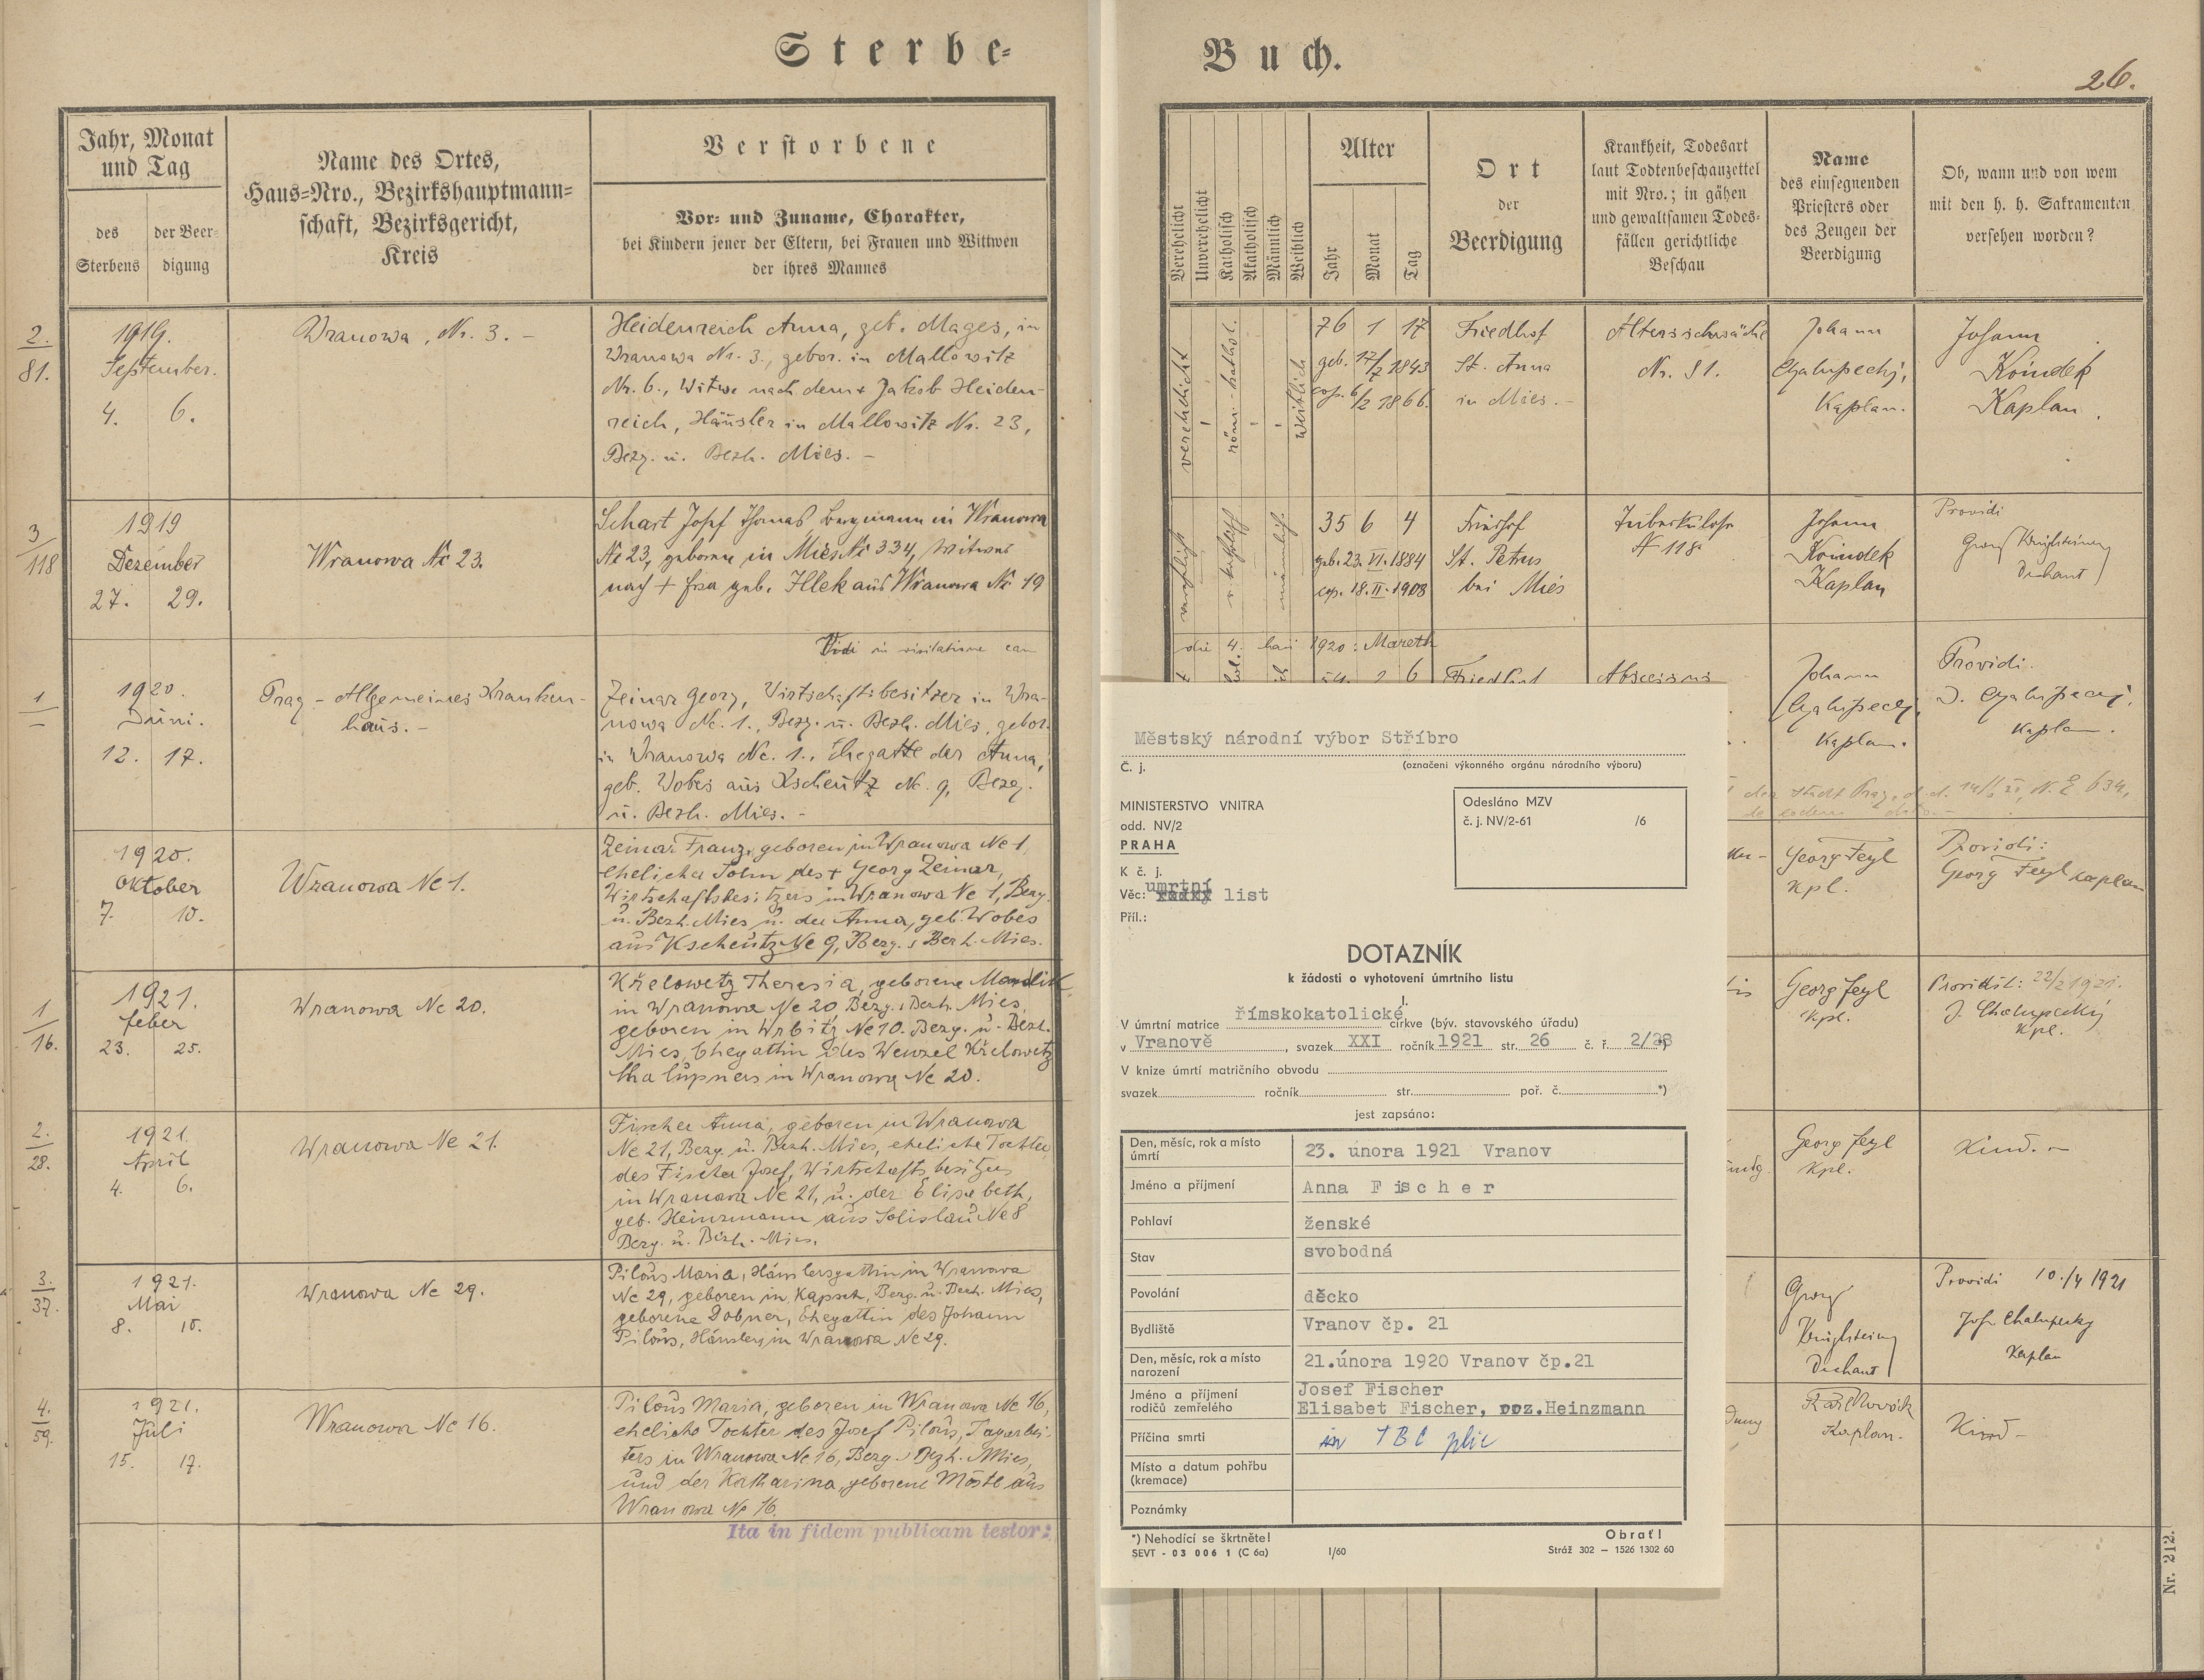 Sterbe-
Jahr, Monat
und Tag
des
Sterbens
der Beer-
digung
Name des Ortes,
Haus-Nro., Bezirkshauptmann-
schaft, Bezirksgericht,
Kreis
Verstorbene
Vor- und Zuname, Charakter,
bei Kindern jener der Eltern, bei Frauen und Wittwen
der ihres Mannes
2.
81.
1919.
September.
4. 6.
Wranowa, Nr. 3. -
Heidenreich Anna, geb. Mages, in
Wranowa Nr. 3., gebor. in Mallowitz
Nr. 6., Witwe nach dem + Jakob Heiden-
reich, Häusler in Mallowitz Nr. 23,
Bezg. u. Bezh. Mies. -
3
118
1919
Dezember
27. 29.
Wranowa № 23.
Schart Josef Thomas Bergmann in Wranowa
№ 23, geboren in Mies № 334, Witwer
nach + geb. Illek aus Wranowa № 19
Vidi in visitatione can
1
1920.
Juni.
12. 17.
Prag - Allgemeines Kranken-
haus. -
Zeinar Georg, Wirtschaftsbesitzer in Wra-
nowa Nr. 1., Bezg. u. Bezh. Mies, gebor.
in Wranowa Nr. 1., Ehegatte der Anna,
geb. Wobes aus Kscheutz Nr. 9, Bezg.
u. Bezh. Mies. -
1920.
Oktober
7. 10.
Wranowa № 1.
Zeinar Franz, geboren in Wranowa № 1,
ehelicher Sohn des + Georg Zeinar,
Wirtschaftsbesitzers in Wranowa № 1, Bezg.
u. Bezh. Mies u. der Anna, geb. Wobes
aus Kscheutz № 9, Bezg. u. Bezh. Mies.
1
16.
1921.
feber
23. 25.
Wranowa № 20.
Křelowetz Theresia, geborene Mandlik
in Wranowa № 20, Bezg. u. Bezh. Mies,
geboren in Wrbitz № 10. Bezg. u. Bezh.
Mies, Ehegattin des Wenzel Křelowetz
Chalupners in Wranowa № 20.
2.
28.
1921.
April
4. 6.
Wranowa № 21.
Fischer Anna, geboren in Wranowa
№ 21, Bezg. u. Bezh. Mies, eheliche Tochter
des Fischer Josef, Wirtschaftsbesitzers
in Wranowa № 21, u. der Elisabeth,
geb. Heinzmann aus Solislau № 8
Bezg. u. Bezh. Mies.
3.
37.
1921.
Mai
8. 10.
Wranowa № 29.
Pilous Maria, Häuslersgattin in Wranowa
№ 29, geboren in Kapsch, Bezg. u. Bezh. Mies,
geborene Dobner, Ehegattin des Johann
Pilous, Häuslers in Wranowa № 29.
4.
59.
1921.
Juli
15. 17.
Wranowa № 16.
Pilous Maria, geboren in Wranowa № 16,
eheliche Tochter des Josef Pilous, Tagarbei-
ters in Wranowa № 16, Bezg. u. Bezh. Mies,
und der Katharina, geborene Möstl aus
Wranowa № 16.
Ita in fidem publicam testor:
Buch.
26.
Verehelicht
Unverehelicht
Katholisch
Akatholisch
Männlich
Weiblich
Alter
Jahr
Monat
Tag
Ort
der
Beerdigung
Krankheit, Todesart
laut Todtenbeschauzettel
mit Nro.; in gähen
und gewaltsamen Todes-
fällen gerichtliche
Beschau
Name
des einsegnenden
Priesters oder
des Zeugen der
Beerdigung
Ob, wann und von wem
mit den h. h. Sakramenten
versehen worden?
verehelicht
röm.-kathol.
weiblich
76 1 17
geb. 17/7 1843
cop. 6/2 1866.
Friedhof
St. Anna
in Mies. -
Altersschwäche
Nr. 81.
Johann
Chalupecký,
Kaplan.
Johann
Koindek
Kaplan.
männlich.
35 6 4
geb. 23. VI. 1884
cop. 18. II. 1908
Friedhof
St. Petrus
bei Mies
Tuberkulose
№ 118
Johann
Koindek
Kaplan
Providi
Georg
Dechant
die 4. Maii 1920: Mareth
2 6
Friedhof
Abscessus
Johann
Chalupecký,
Kaplan.
Providi.
J. Chalupecký,
Kaplan.
der Stadt Prag, d. d.
Georg Feyl
Kpl.
Providi:
Georg Feyl Kaplan
Georg Feyl
Kpl.
Providit: 22/2 1921.
J. Chalupecký
Kpl.
Georg Feyl
Kpl.
Kind. -
Georg
Dechant
Providi 10./4 1921
Joh. Chalupecky
Kaplan
Karl Novák
Kaplan.
Kind -
Městský národní výbor Stříbro
Č. j.
(označení výkonného orgánu národního výboru)
MINISTERSTVO VNITRA
odd. NV/2
PRAHA
K č. j.
Věc: úmrtní list
Příl.:
Odesláno MZV
č. j. NV/2-61 /6
DOTAZNÍK
k žádosti o vyhotovení úmrtního listu
I.
V úmrtní matrice římskokatolické církve (býv. stavovského úřadu)
v Vranově, svazek XXI ročník 1921 str. 26 č. ř. 2/28 *)
V knize úmrtí matričního obvodu
svazek ročník str. poř. č. *)
jest zapsáno:
Den, měsíc, rok a místo
úmrtí
23. února 1921 Vranov
Jméno a příjmení
Anna Fischer
Pohlaví
ženské
Stav
svobodná
Povolání
děcko
Bydliště
Vranov čp. 21
Den, měsíc, rok a místo
narození
21.února 1920 Vranov čp.21
Jméno a příjmení
rodičů zemřelého
Josef Fischer
Elisabet Fischer, roz.Heinzmann
Příčina smrti
TBC plic
Místo a datum pohřbu
(kremace)
Poznámky
*) Nehodící se škrtněte!
Obrať!
SEVT - 03 006 1 (C 6a) I/60
Stráž 302 — 1526 1302 60
Nr. 212.